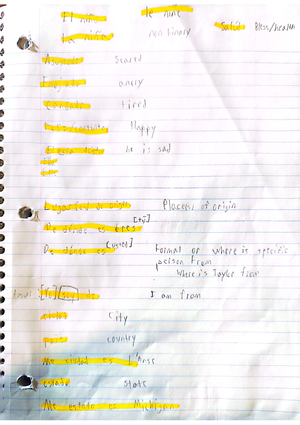 El niño le niñe
La niña non binary Salud Bless/health
Asustado Scared
Enojado angry
Cansado tired
Happy
he is sad
Lugar(es) de origen Place(s) of origin
De dónde es eres [tú]
De dónde es [usted] Formal or where is specific
person from
Where is Taylor from
[Yo] [soy] de I am from
city
país country
Me ciudad es L'Anse
estado state
Me estado es Michigan